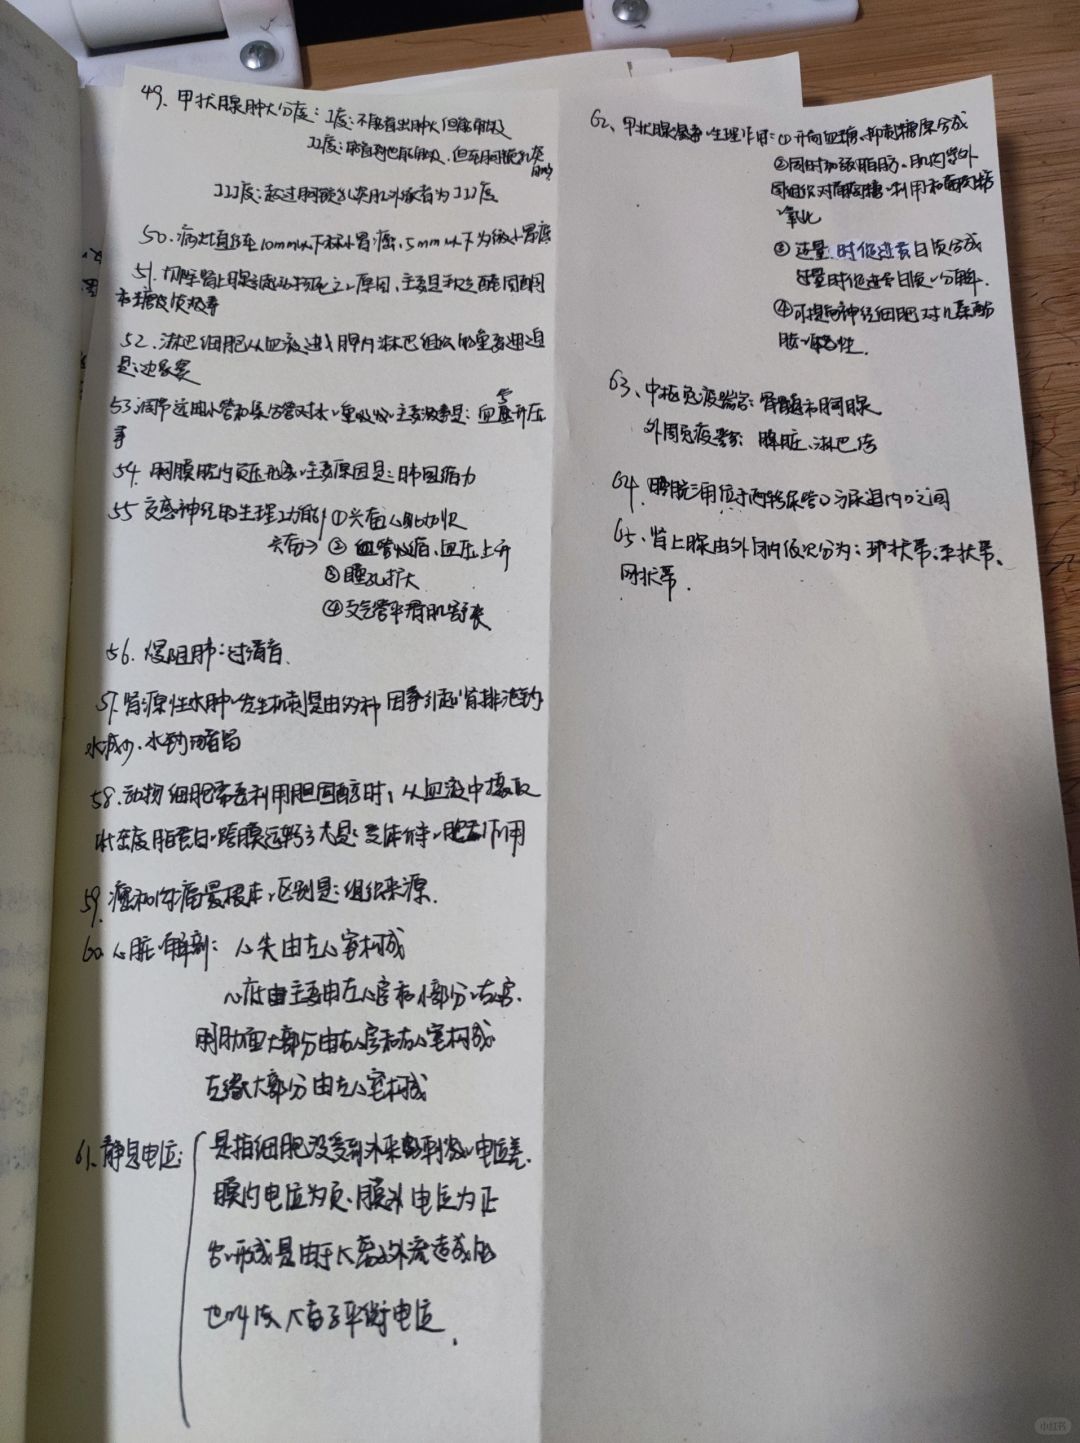 49、甲状腺肿大分度：I度：不能看出肿大但能触及
II度：能看到也能触及，但在胸锁乳突
肌内
III度：超过胸锁乳突肌外缘者为III度
50、病灶直径在10mm以下称小胃癌，5mm以下为微小胃癌
51、切除肾上腺 动物死亡原因，主要是缺乏醛固酮
和糖皮质激素
52、淋巴细胞从血液进入脾内淋巴组织的重要通道
是：边缘窦
53、调节远曲小管和集合管对水重吸收主要激素是：血管升压
素
54、胸膜腔内负压形成主要原因是：肺回缩力
55 交感神经的生理功能 ①兴奋心肌加快
兴奋→ ②血管收缩、血压上升
③瞳孔扩大
④支气管平滑肌舒张
56、慢阻肺：过清音
57、肾源性水肿发生机制是由多种因素引起肾排泄钠
水减少、水钠潴留
58、动物细胞需要利用胆固醇时，从血液中摄取
低密度脂蛋白跨膜运转方式是：受体介导胞吞作用
59、癌和肉瘤最根本区别是：组织来源.
60、心脏解剖：心尖由左心室构成
心底由主要由左心房和小部分右房.
胸肋面大部分由右心房和右心室构成
左缘大部分由左心室构成
61、静息电位：是指细胞没受到外来刺激电位差.
膜内电位为负、膜外电位为正
形成是由于K离子外流造成的
也叫做K离子平衡电位.
62、甲状腺激素生理作用：①升高血糖、抑制糖原合成
②同时加强脂肪、肌肉等外
周组织对葡萄糖利用和葡萄糖
氧化
③适量时促进蛋白质合成
过量时促进蛋白质分解.
④可提高神经细胞对儿茶酚
胺敏感性.
63、中枢免疫器官：骨髓和胸腺
外周免疫器官：脾脏、淋巴结
64、膀胱三角位于两输尿管口与尿道内口之间
65、肾上腺由外向内依次分为：球状带、束状带、
网状带.
小红书